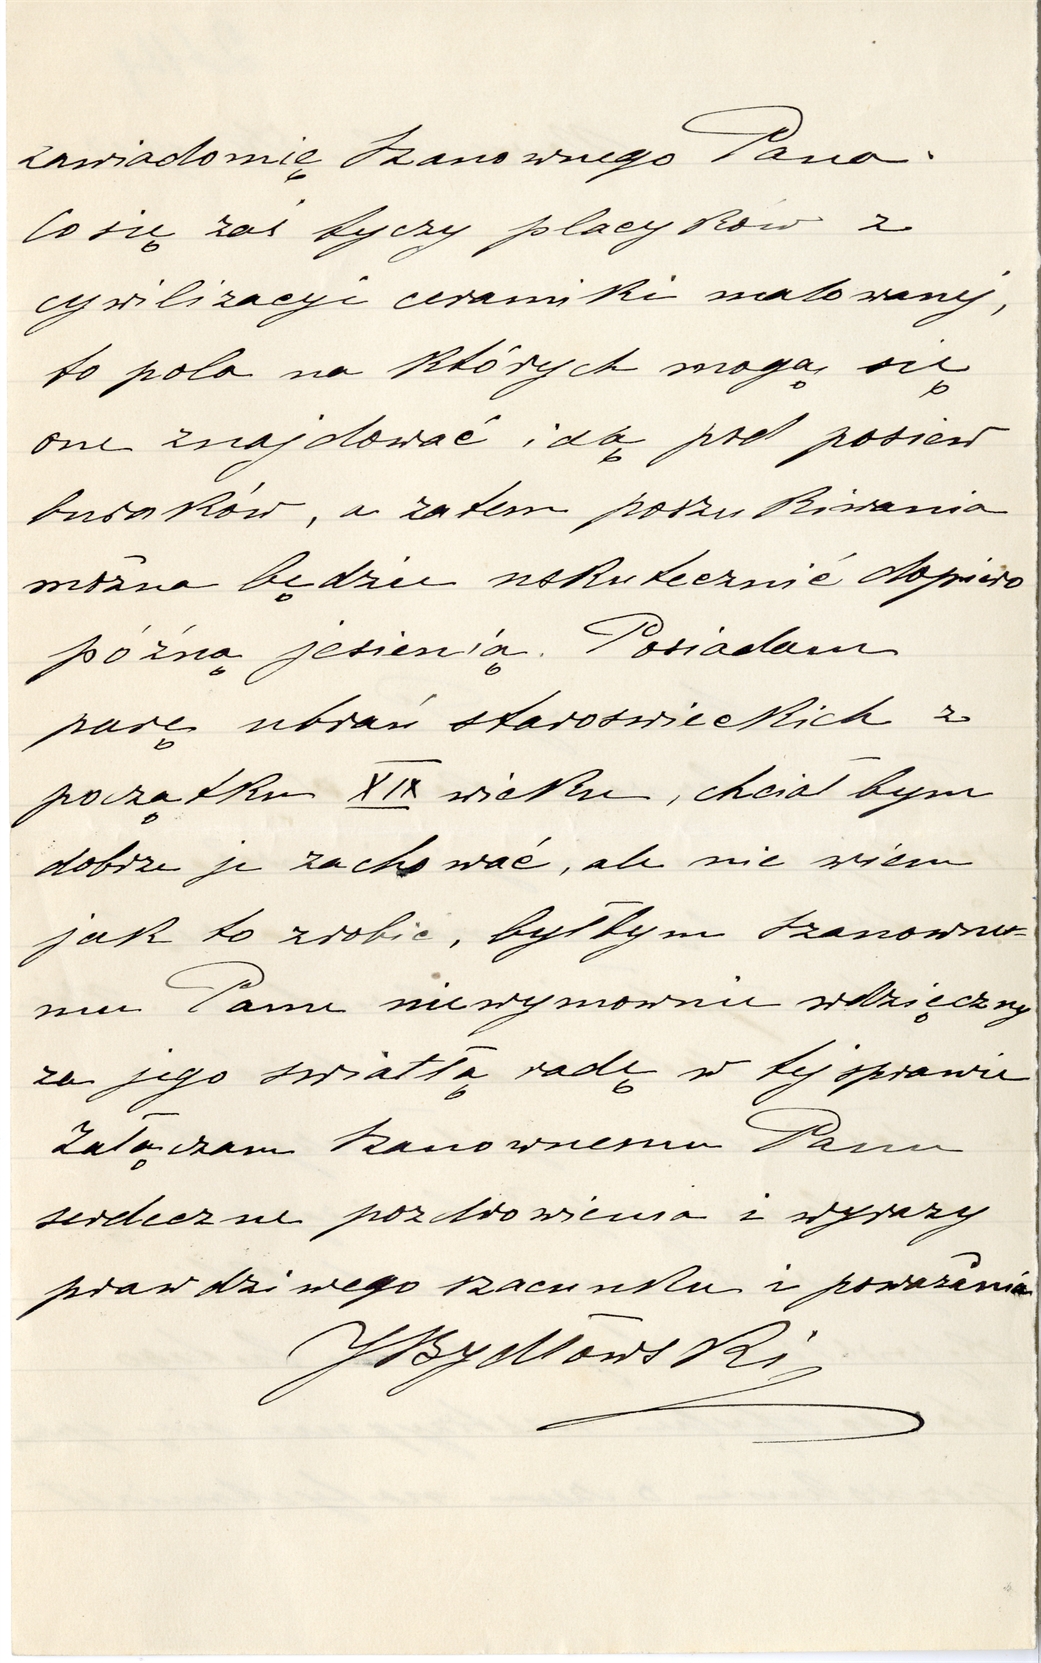 zawiadomię Szanownego Pana.
Co się zaś tyczy placyków z
cywilizacyi ceramiki malowanej,
to pola na których mogą się
one znajdować idą pod posiew
buraków, a zatem poszukiwania
można będzie uskutecznić dopiero
późną jesienią. Posiadam
parę ubrań staroswieckich z
początku XIX wieku, chciał bym
dobrze je zachować, ale nie wiem
jak to zrobic, byłbym Szanowne-
mu Panu niewymownie wdzięczny
za jego swiatłą radę w tej sprawie
Załączam Szanownemu Panu
serdeczne pozdrowienia i wyrazy
prawdziwego szacunku i poważania
JBydłowski